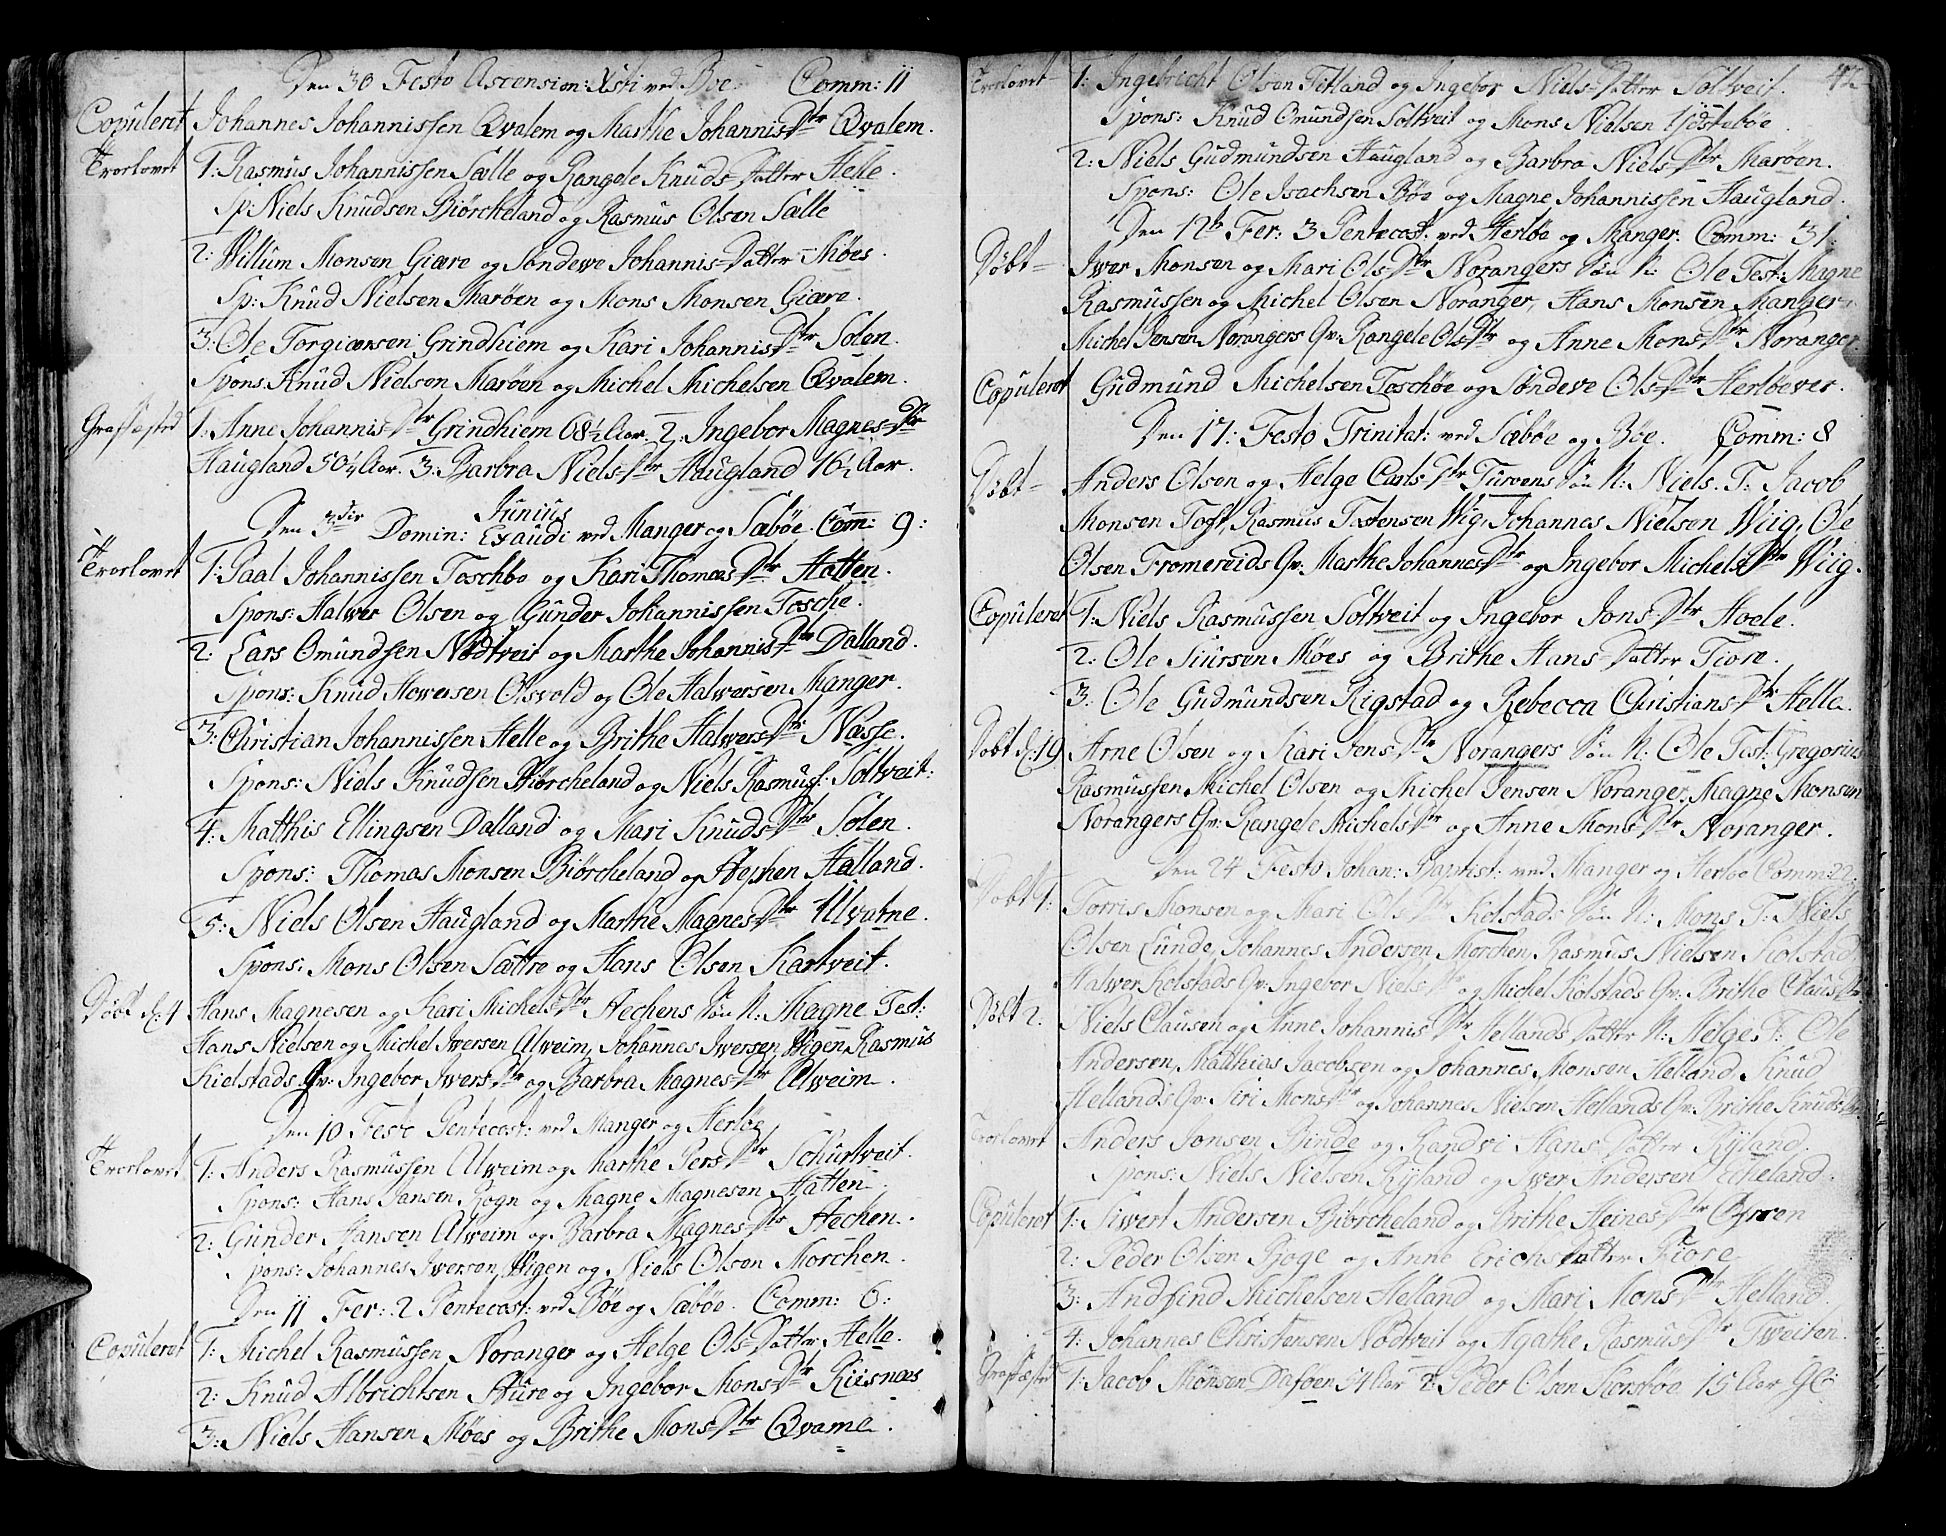 Den 30 Festo Ascension: Xsti ved Boe. Comm: 11
Copuleret Johannes Johannissen Qvalem og Marthe Johannis Dtr Qvalem.
Troelovet 1: Rasmus Johannissen Sælle og Rangele Knuds Datter Helle.
Sp: Niels Knudsen Biörcheland og Rasmus Olsen Sælle
2: Willum Monsen Giære og Söndewe Johannis Datter Möes.
Sp: Knud Nielsen Maröen og Mons Monsen Giære.
3: Ole Torgiærsen Grindhiem og Kari Johannis Dtr Solen.
Spons: Knud Nielsen Maröen og Michel Michelsen Qvalem.
Grafæsted 1: Anne Johannis Dtr Grindhiem 68½ Aar. 2: Ingebor Magnes Dtr
Haugland 50½ Aar. 3: Barbra Niels Dtr Haugland 16½ Aar.
Junius
Den 3die Domin: Exaudi ved Manger og Sæböe. Com: 9:
Troelovet 1: Paal Johannissen Toschöe og Kari Thomæs Dtr Hatten.
Spons: Halwer Olsen og Gunder Johannissen Tosche.
2: Lars Omundsen Nödtveit og Marthe Johannis Dtr Dalland.
Spons: Knud Hewersen Olsvold og Ole Halwersen Manger.
3: Christian Johannissen Helle og Brithe Halwers Dtr Næsse.
Spons: Niels Knudsen Biörcheland og Niels Rasmuss: Soltveit:
4: Matthis Ellingsen Dalland og Mari Knuds Dtr Solen.
Spons: Thomas Monsen Biörcheland og Hephen Halland.
5: Niels Olsen Haugland og Marthe Magnes Dtr Ulvatne.
Spons: Mons Olsen Sættre og Hans Olsen Kartveit.
Döbt d: 4 Hans Magnesen og Kari Michels Dtr Hechens Sön N: Magne Test:
Hans Nielsen og Michel Iwersen Alweim, Johannes Iwersen Wigen, Rasmus
Kielstads Qv: Ingebor Iwers Dtr og Barbra Magnes Dtr Alweim.
Den 10 Festo Pentecost: ved Manger og Herlöe
Troelovet 1: Anders Rasmussen Alweim og Marthe Pers Dtr Schurtveit.
Spons: Hans Jansen Rogn og Magne Magnesen Hatten.
2: Gunder Hansen Alweim og Barbra Magnes Dtr Hechen.
Spons: Johannes Iwersen Wigen og Niels Olsen Morchen.
Den 11 Fer: 2 Pentecost: ved Böe og Sæböe. Comm: 6:
Copuleret 1: Michel Rasmussen Noranger og Helge Ols Datter Helle.
2: Knud Albrichtsen Sture og Ingebor Mons Dtr Riisnæs
3: Niels Hansen Möes og Brithe Mons Dtr Qvame.
42
Troelovet 1: Ingebricht Olsen Titland og Ingebor Niels Datter Soltveit.
Spons: Knud Omundsen Soltveit og Mons Nielsen Udsteböe.
2: Niels Gudmundsen Haugland og Barbra Niels Dtr Maröen.
Spons: Ole Isachsen Böe og Magne Johannissen Haugland.
Den 12te Fer: 3 Pentecost: ved Herlöe og Manger. Comm: 31:
Döbt Iwer Monsen og Mari Ols Dtr Norangers Sön N: Ole Test: Magne
Rasmussen og Michel Olsen Noranger, Hans Monsen Manger,
Michel Jensen Norangers Qv: Rangele Ols Dtr og Anne Mons Dtr Noranger.
Copuleret Gudmund Michelsen Toschöe og Söndeve Ols Dtr Herlöever.
Den 17: Festo Trinitat: ved Sæböe og Böe. Comm: 8
Döbt Anders Olsen og Helge Carls Dtr Turvens Sön N: Niels. T: Jacob
Monsen Toft, Rasmus Tostensen Wiig, Johannes Nielsen Wiig, Ole
Olsen Fromereids Qv: Marthe Johannes Dtr og Ingebor Michels Dtr Wiig.
Copuleret 1: Niels Rasmussen Soltveit og Ingebor Jons Dtr Hoele.
2: Ole Siursen Möes og Brithe Hans Datter Fiore.
3: Ole Gudmundsen Rigstad og Rebecca Christians Dtr Helle.
Döbt d: 19 Arne Olsen og Kari Jens Dtr Norangers Sön N: Ole Test: Gregorius
Rasmussen, Michel Olsen og Michel Jensen Noranger, Magne Monsen
Norangers Qv: Rangele Michels Dtr og Anne Mons Dtr Noranger.
Den 24 Festo Johan: Baptist: ved Manger og Herlöe Comm: 22:
Döbt 1: Torris Monsen og Mari Ols Dtr Kolstads Sön N: Mons T: Niels
Olsen Lunde, Johannes Andersen Morchen, Rasmus Nielsen Kolstad,
Halwer Kolstads Qv: Ingebor Niels Dtr og Michel Kolstads Qv: Brithe Claus Dtr
Döbt 2: Niels Clausen og Anne Johannis Dtr Hellands Datter N: Helge. T: Ole
Andersen, Matthias Jacobsen og Johannes Monsen Helland, Knud
Hellands Qv: Siri Mons Dtr og Johannes Nielsen Hellands Qv: Brithe Knuds Dtr
Troelovet Anders Jonsen Binde og Randvi Hans Datter Ryland.
Spons: Niels Nielsen Ryland og Iwer Andersen Echeland.
Copuleret 1: Siwert Andersen Biörcheland og Brithe Heines Dtr Öyren
2: Peder Olsen Boge og Anne Erichs Datter Fiore
3: Andfind Michelsen Helland og Mari Mons Dtr Helland.
4: Johannes Christensen Nödtveit og Agathe Rasmus Dtr Tweiten.
Grafæsted 1: Jacob Monsen Dalöen 54 Aar 2: Peder Olsen Korsböe 15 Aar